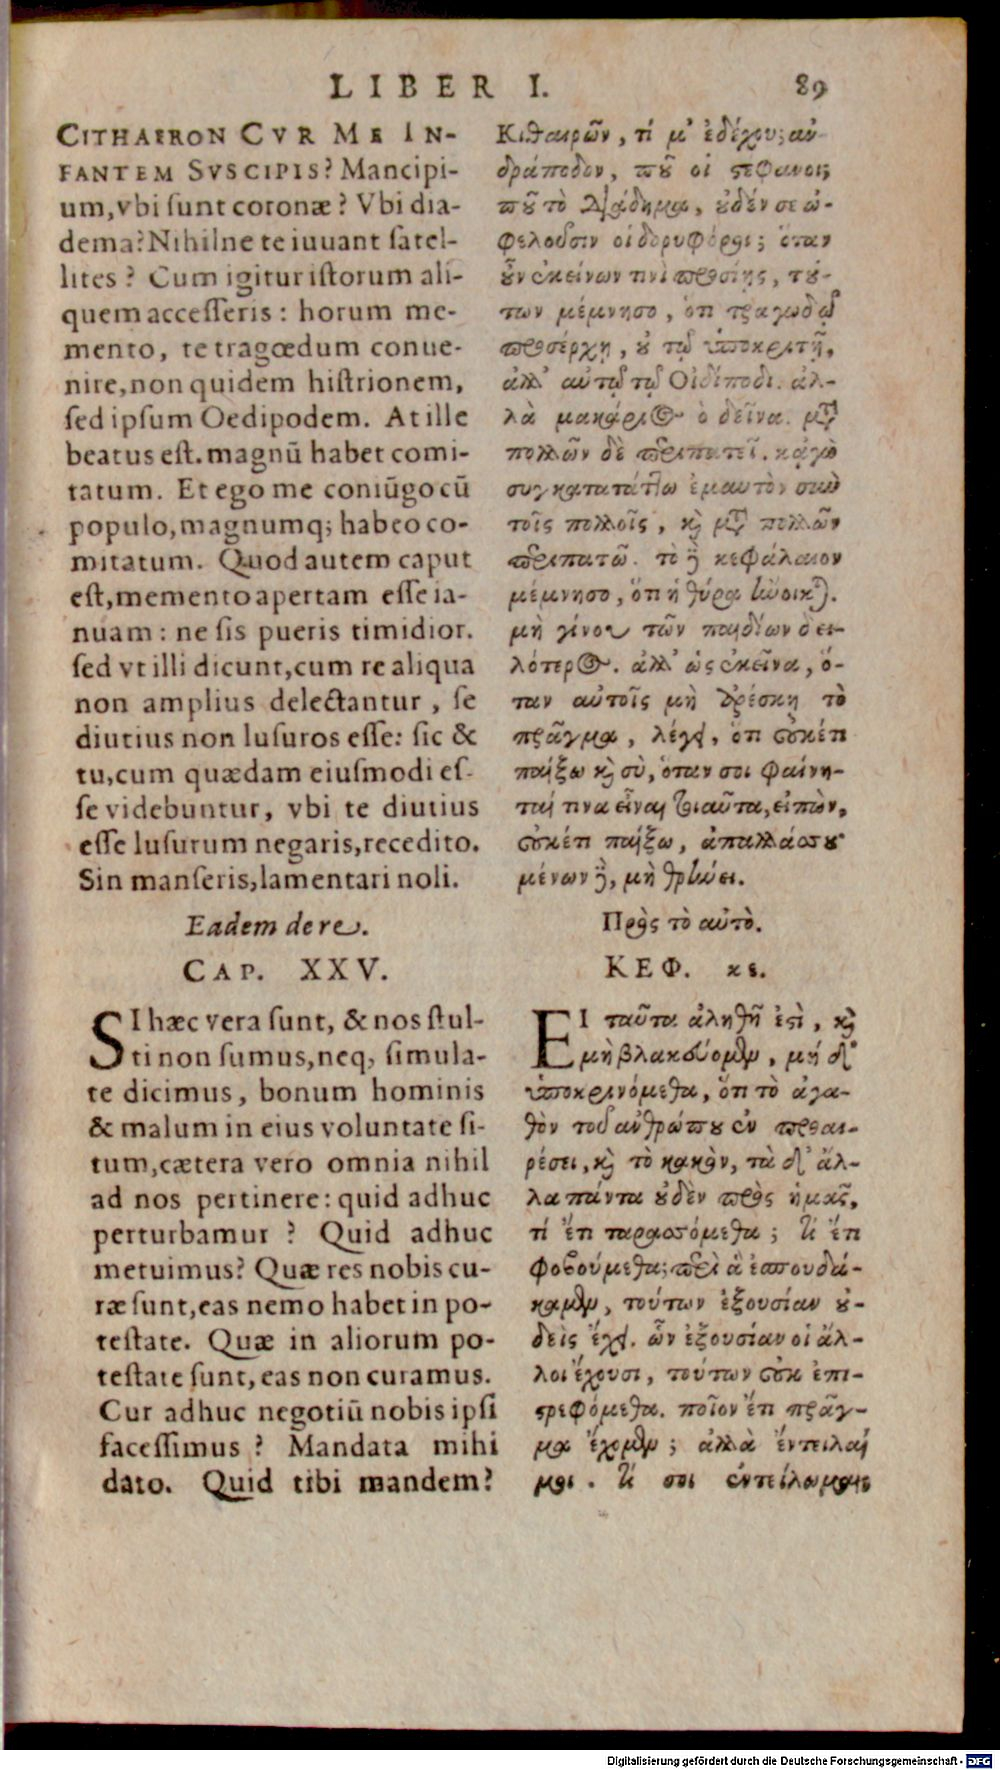 LIBER I. 89
CITHAERON CVR ME IN-
FANTEM SVSCIPIS? Mancipi-
um, vbi sunt coronæ? Vbi dia-
dema? Nihilne te iuuant satel-
lites? Cum igitur istorum ali-
quem accesseris: horum me-
mento, te tragœdum conue-
nire, non quidem histrionem,
sed ipsum Oedipodem. At ille
beatus est. magnū habet comi-
tatum. Et ego me coniūgo cū
populo, magnumq; habeo co-
mitatum. Quod autem caput
est, memento apertam esse ia-
nuam: ne sis pueris timidior.
sed vt illi dicunt, cum re aliqua
non amplius delectantur, se
diutius non lusuros esse: sic &
tu, cum quædam eiusmodi es-
se videbuntur, vbi te diutius
esse lusurum negaris, recedito.
Sin manseris, lamentari noli.
Eadem de re.
CAP. XXV.
SI hæc vera sunt, & nos stul-
ti non sumus, neq; simula-
te dicimus, bonum hominis
& malum in eius voluntate si-
tum, cætera vero omnia nihil
ad nos pertinere: quid adhuc
perturbamur? Quid adhuc
metuimus? Quæ res nobis cu-
ræ sunt, eas nemo habet in po-
testate. Quæ in aliorum po-
testate sunt, eas non curamus.
Cur adhuc negotiū nobis ipsi
facessimus? Mandata mihi
dato. Quid tibi mandem?
Κιθαιρῶν, τί μ' ἐδέχου; ἀν-
δράποδον, ποῦ οἱ στέφανοι;
ποῦ τὸ διάδημα, οὐδέν σε ὠ-
φελοῦσιν οἱ δορυφόροι; ὅταν
οὖν ἐκείνων τινὶ προσίῃς, τού-
των μέμνησο, ὅτι τραγῳδῷ
προσέρχῃ, οὐ τῷ ὑποκριτῇ,
ἀλλ' αὐτῷ τῷ Οἰδίποδι. ἀλ-
λὰ μακάριος ὁ δεῖνα. μετὰ
πολλῶν δὲ περιπατεῖ. κᾀγὼ
συγκατατάττω ἐμαυτὸν σὺν
τοῖς πολλοῖς, καὶ μετὰ πολλῶν
περιπατῶ. τὸ δὲ κεφάλαιον
μέμνησο, ὅτι ἡ θύρα ἤνοικται.
μὴ γίνου τῶν παιδίων δει-
λότερος. ἀλλ' ὡς ἐκεῖνα, ὅ-
ταν αὐτοῖς μὴ ἀρέσκῃ τὸ
πρᾶγμα, λέγει, ὅτι οὐκέτι
παίξω καὶ σὺ, ὅταν σοι φαίνη-
ταί τινα εἶναι τοιαῦτα, εἰπὼν,
οὐκέτι παίξω, ἀπαλλάσσου·
μένων δὲ, μὴ θρήνει.
Πρὸς τὸ αὐτὸ.
ΚΕΦ. κε.
ΕΙ ταῦτα ἀληθῆ ἐστὶ, καὶ
μὴ βλακεύομεν, μήδ'
ὑποκρινόμεθα, ὅτι τὸ ἀγα-
θὸν τοῦ ἀνθρώπου ἐν προαι-
ρέσει, καὶ τὸ κακὸν, τὰ δ' ἄλ-
λα πάντα οὐδὲν πρὸς ἡμᾶς,
τί ἔτι ταρασσόμεθα; τί ἔτι
φοβούμεθα; περὶ ἃ ἐσπουδά-
καμεν, τούτων ἐξουσίαν οὐ-
δεὶς ἔχει. ὧν ἐξουσίαν οἱ ἄλ-
λοι ἔχουσι, τούτων οὐκ ἐπι-
στρεφόμεθα. ποῖον ἔτι πρᾶγ-
μα ἔχομεν; ἀλλὰ ἔντειλαί
μοι. τί σοι ἐντείλωμαι;
Digitalisierung gefördert durch die Deutsche Forschungsgemeinschaft - DFG